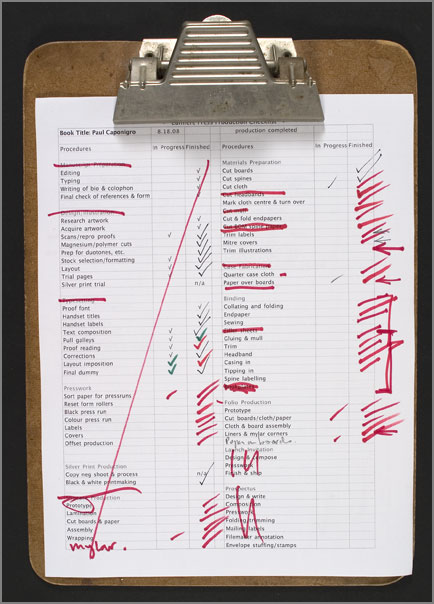 Production Checklist
Book Title: Paul Caponigro 8.18.08 production completed
Procedures In Progress Finished Procedures In Progress Finished
Manuscript Preparation
Editing
Typing
Writing of bio & colophon
Final check of references & form
Research artwork
Acquire artwork
Scans/repro proofs
Magnesium/polymer cuts
Prep for duotones, etc.
Stock selection/formatting
Layout
Trial pages
Silver print trial n/a
Typesetting
Proof font
Handset titles
Handset labels
Text composition
Full galleys
Proof reading
Corrections
Layout imposition
Final dummy
Presswork
Sort paper for pressruns
Reset form rollers
Black press run
Colour press run
Labels
Covers
Offset production
Silver Print Production
Copy neg shoot & process n/a
Black & white printmaking
Production
Prototype
Lamination
Cut boards & paper
Assembly
Wrapping
mylar.
Materials Preparation
Cut boards
Cut spines
Cut cloth
Cut headboards
Mark cloth centre & turn over
Cut & fold endpapers
Trim labels
Mitre covers
Trim illustrations
Case Fabrication
Quarter case cloth
Paper over boards
Binding
Collating and folding
Endpaper
Sewing
Glueing & mull
Trim
Headband
Casing in
Tipping in
Spine labelling
Folio Production
Prototype
Cut boards/cloth/paper
Cloth & board assembly
Liners & mylar corners
Paper boards
Launch Invitation
Design & compose
Presswork
Finish & ship
Prospectus
Design & write
Composition
Presswork
Folding/trimming
Mailing labels
Filemaker annotation
Envelope stuffing/stamps